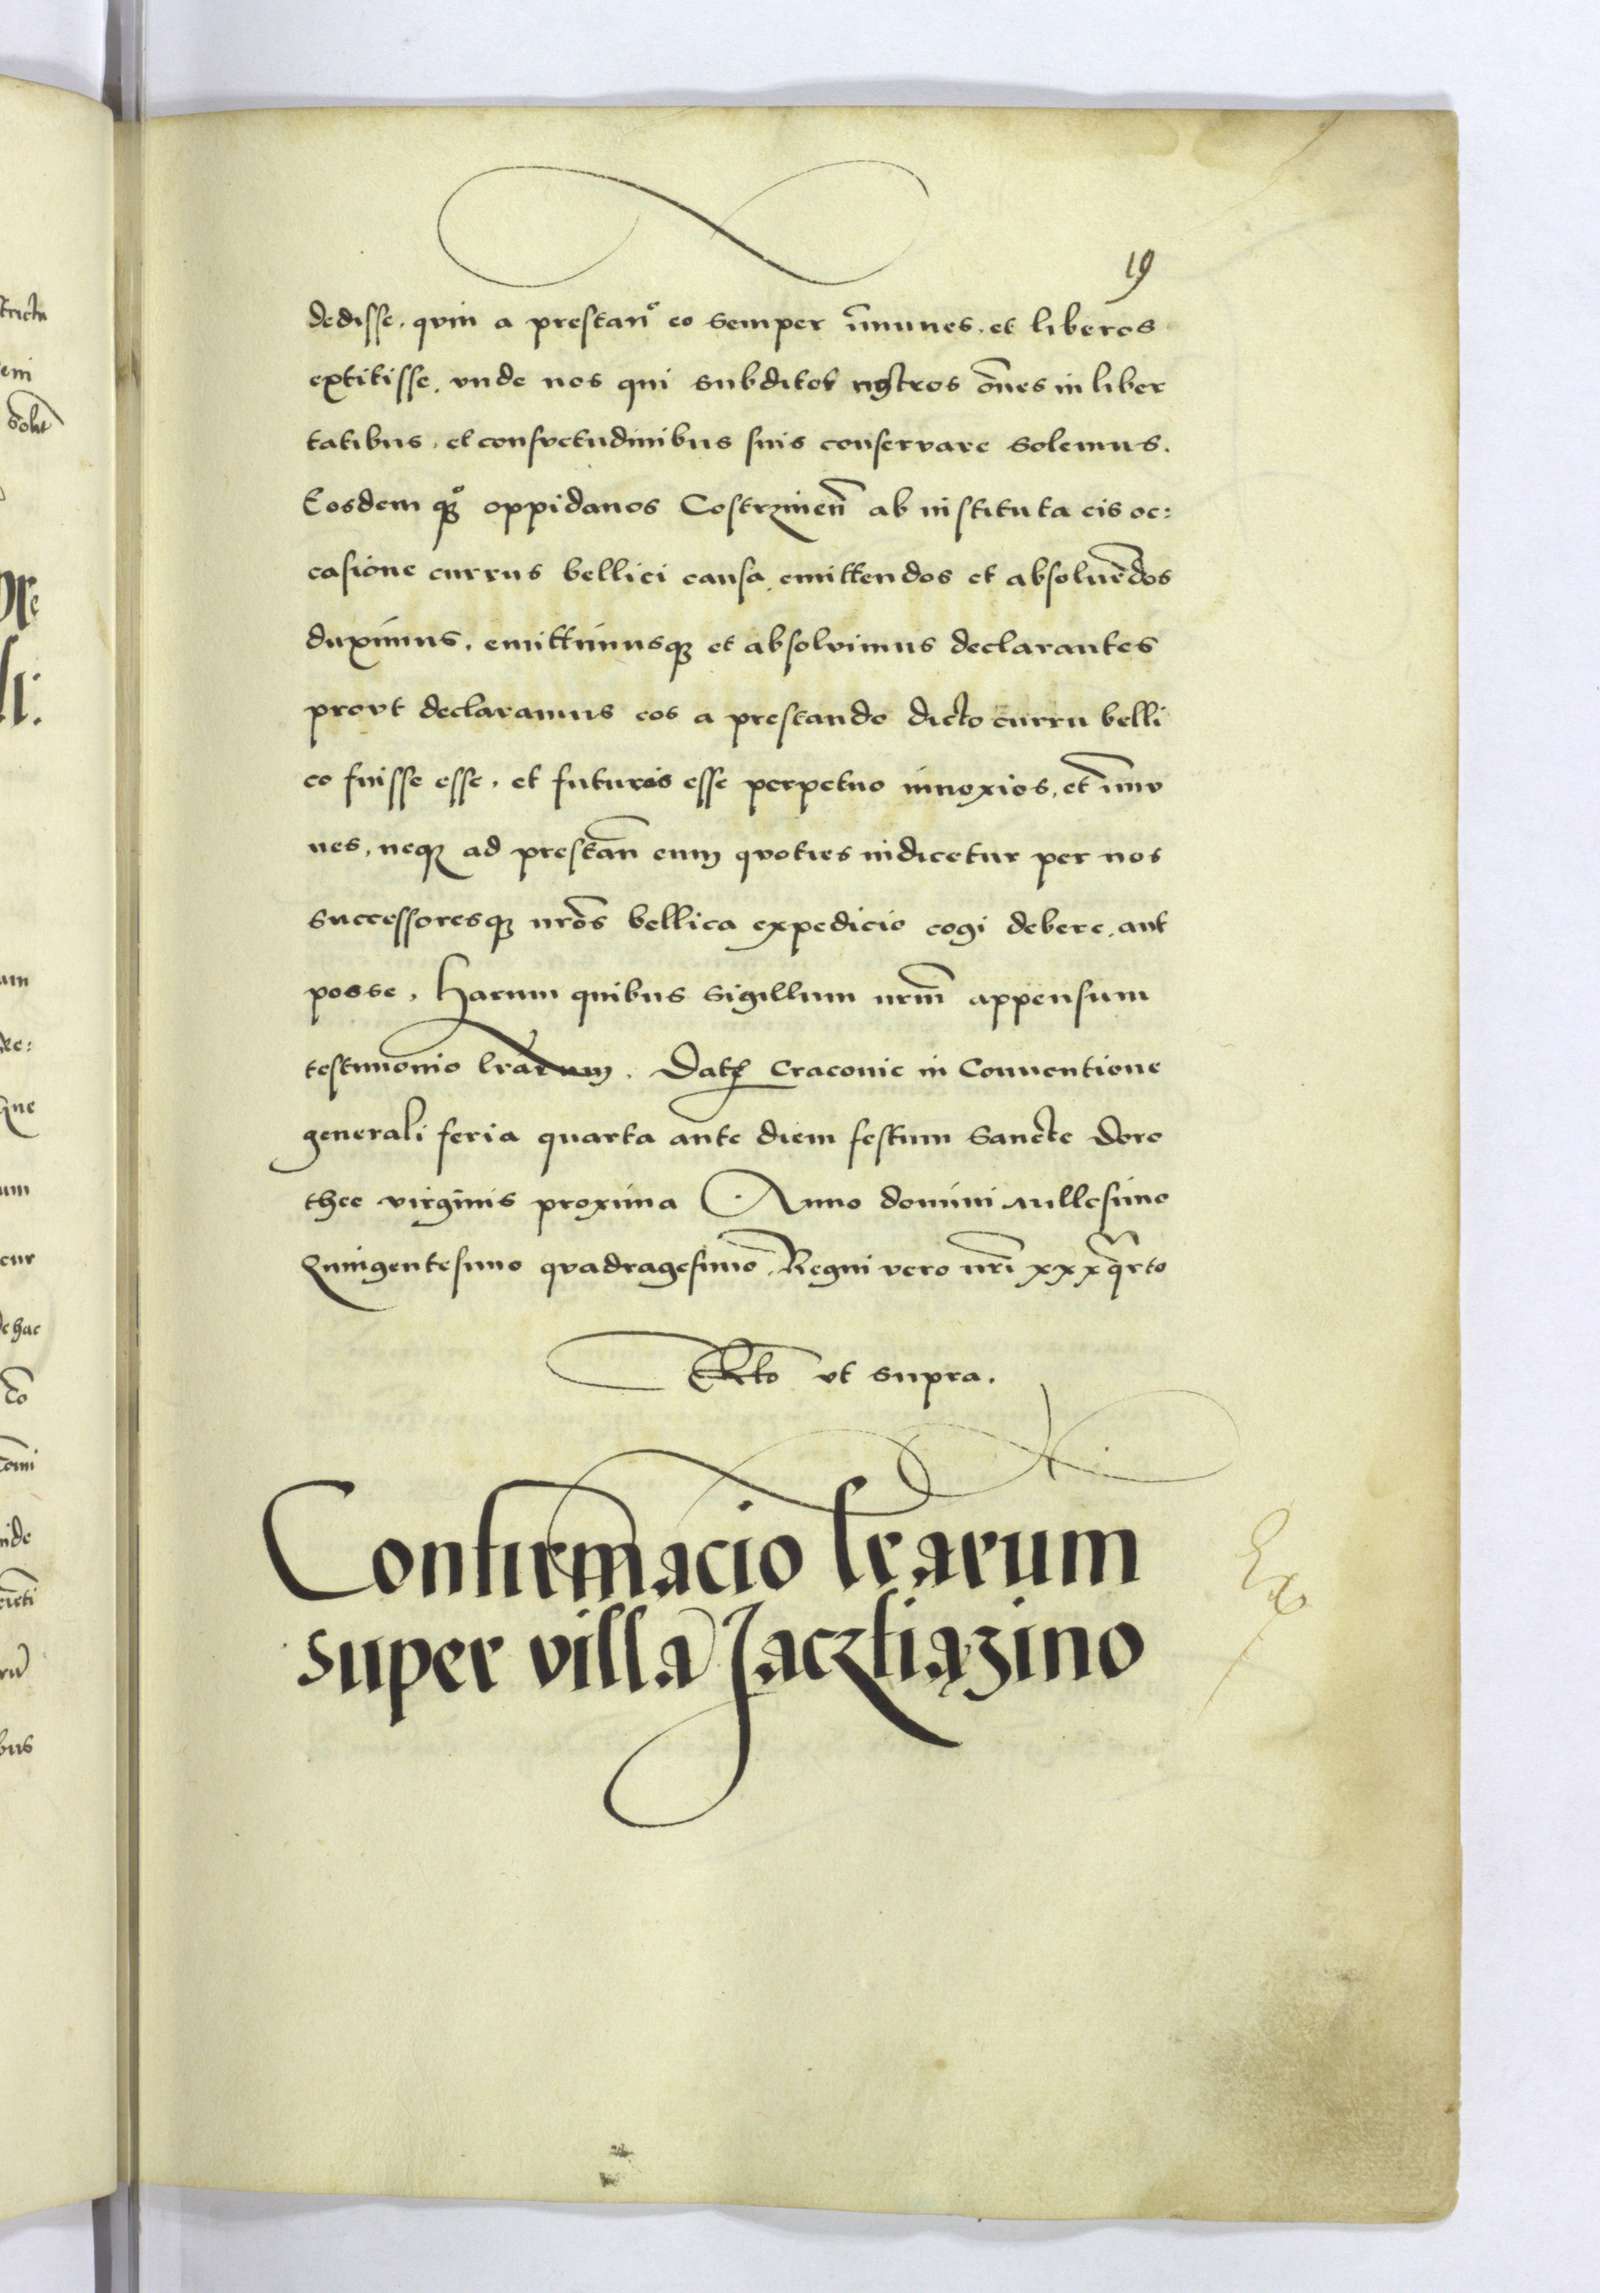 19
dedisse. quin a prestan͂o eo semper īmunes. et liberos
extitisse. vnde nos qui subditos nostros oēs in liber
tatibus. et consvetudinibus suis conservare solemus.
Eosdem qꝫo oppidanos Costrzinēn ab instituta eis oc:
casione currus bellici causa emittendos et absoluēdos
duximus. emittimusqꝫ et absolvimus declarantes
provt declaramus eos a prestando dicto curru belli
co fuisse esse. et futuros esse perpetuo innoxios. et īmv
nes. neqꝫ ad prestān eum qvoties indicetur per nos
successoresqꝫ nrōs bellica expedicio cogi debere. aut
posse. Harum quibus sigillum nrm̄ appensum
testimonio lrarum. Datꝭ Cracovie in Conventione
generali feria quarta ante diem festum Sancte Doro
thee virginis proxima Anno domini Millesimo
Quingentesimo qvadragesimo. Regni vero nrī xxxqrto
Rto vt supra.
Confirmacio lrarum
super villā Jaczkiązino